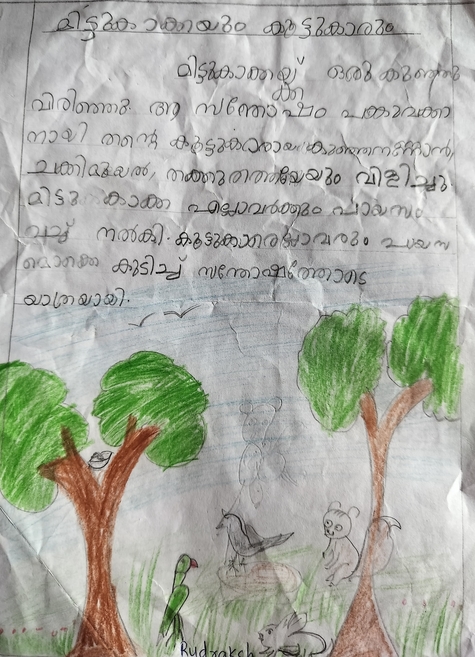 മിട്ടുകാക്കയും കൂട്ടുകാരും
മിട്ടുകാക്കയ്ക്ക് ഒരു കുഞ്ഞു
വിരിഞ്ഞു. ആ സന്തോഷം പങ്കുവക്കാ
നായി തന്റെ കൂട്ടുകാരായ കുഞ്ഞനണ്ണാൻ,
ചക്കിമുയൽ, തക്കുതത്തയേയും വിളിച്ചു.
മിട്ടു കാക്ക എല്ലാവർക്കും പായസം
വച്ച് നൽകി. കൂട്ടുകാരെല്ലാവരും പായസ
മൊക്കെ കുടിച്ച് സന്തോഷത്തോടെ
യാത്രയായി.
Rudraksh